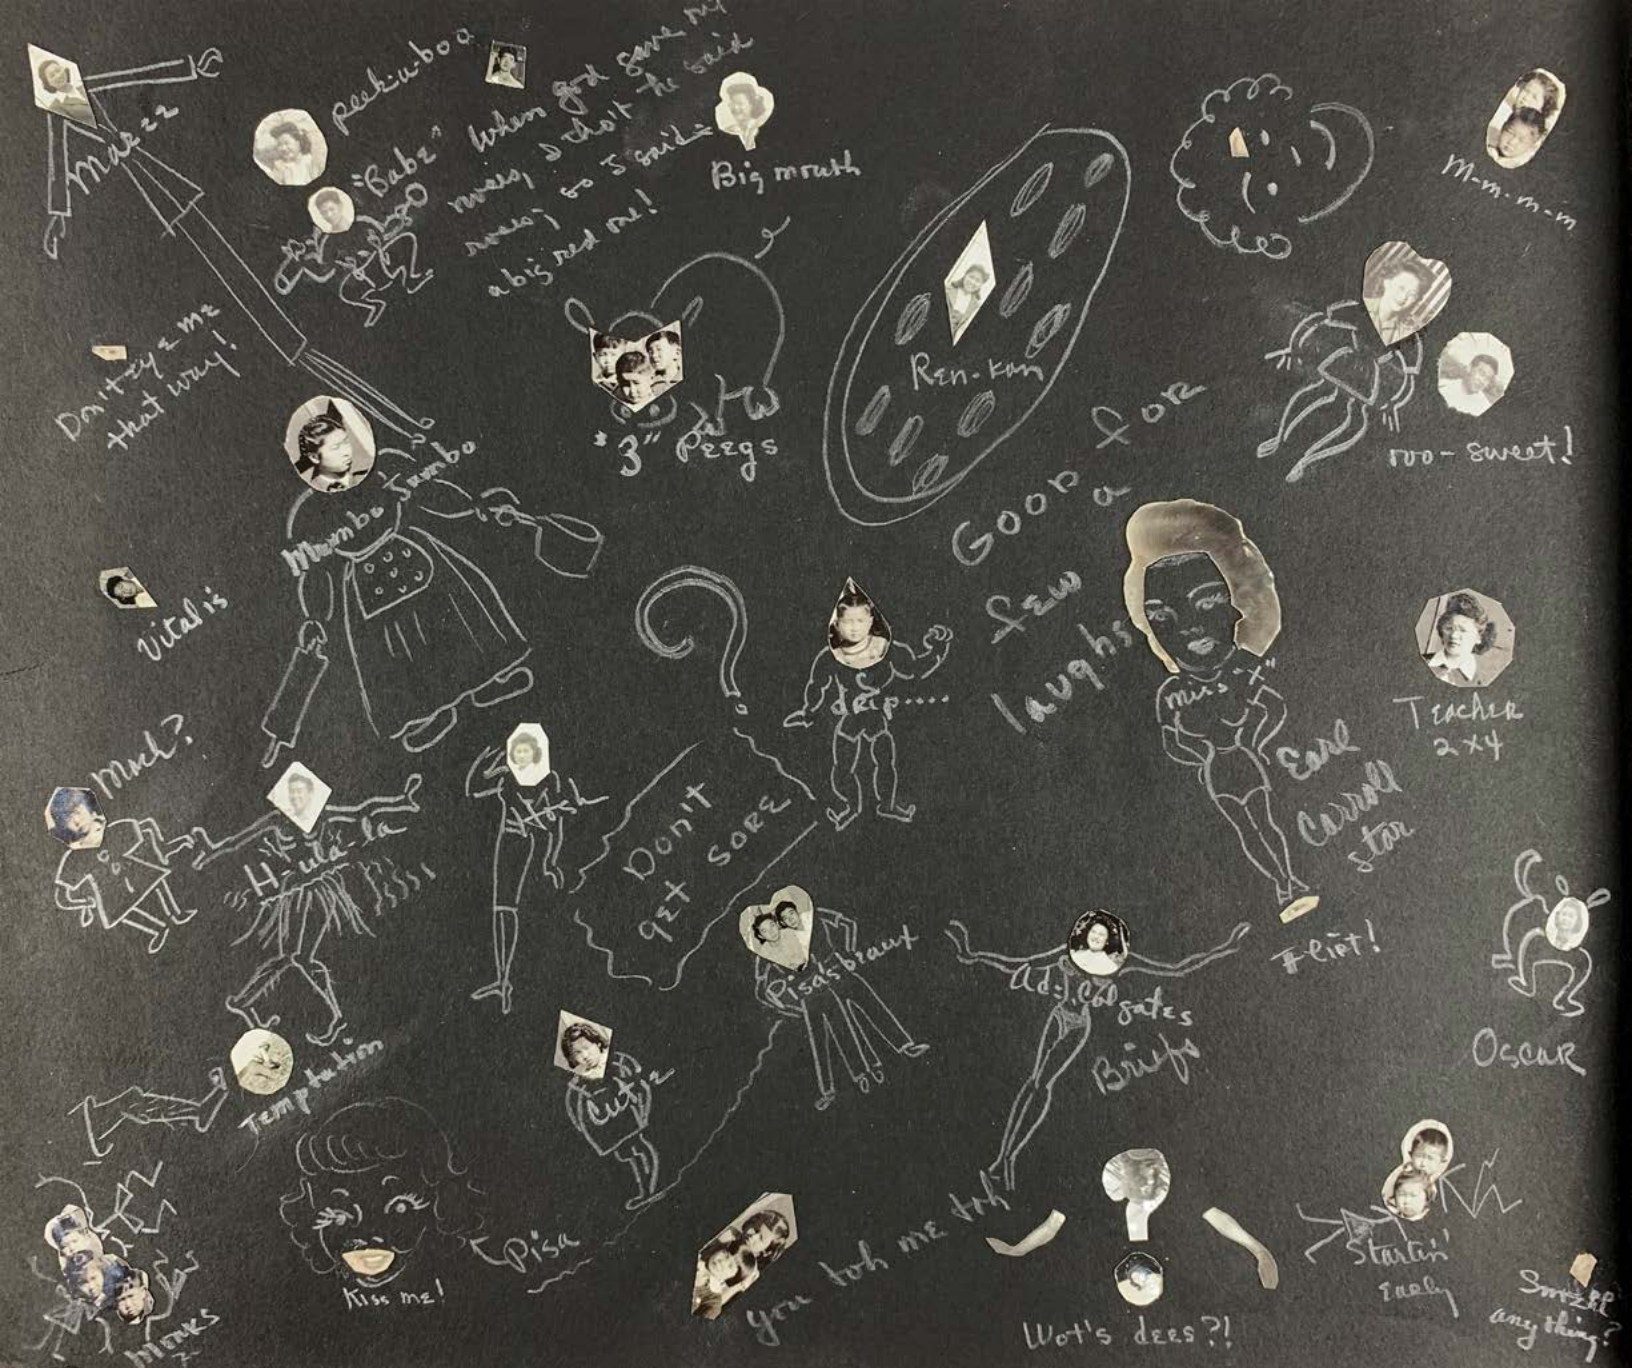 Maezz
peek-a-boo
"Babe"
When god gave out
noses, I tho't he said
roses; so I said=
a big red one!
Big mouth
M-m-m-m
Don't eye me
that way!
"3" Peegs
Ren-kon
ooo-sweet!
Mumbo Jumbo
Vitalis
Good for
a
few
laughs
drip....
Miss "X"
Earl
Carroll
star
Teacher
2x4
Moch?
H-ula-la
Hush
Don't
get sore
Pisa's beaux
Ad: Colgates
Briefs
Flirt!
Oscar
Temptation
Cute
Kiss me!
Pisa
Monks
you toh me toh
Wot's dees?!
Startin'
Early
Smell
anything?